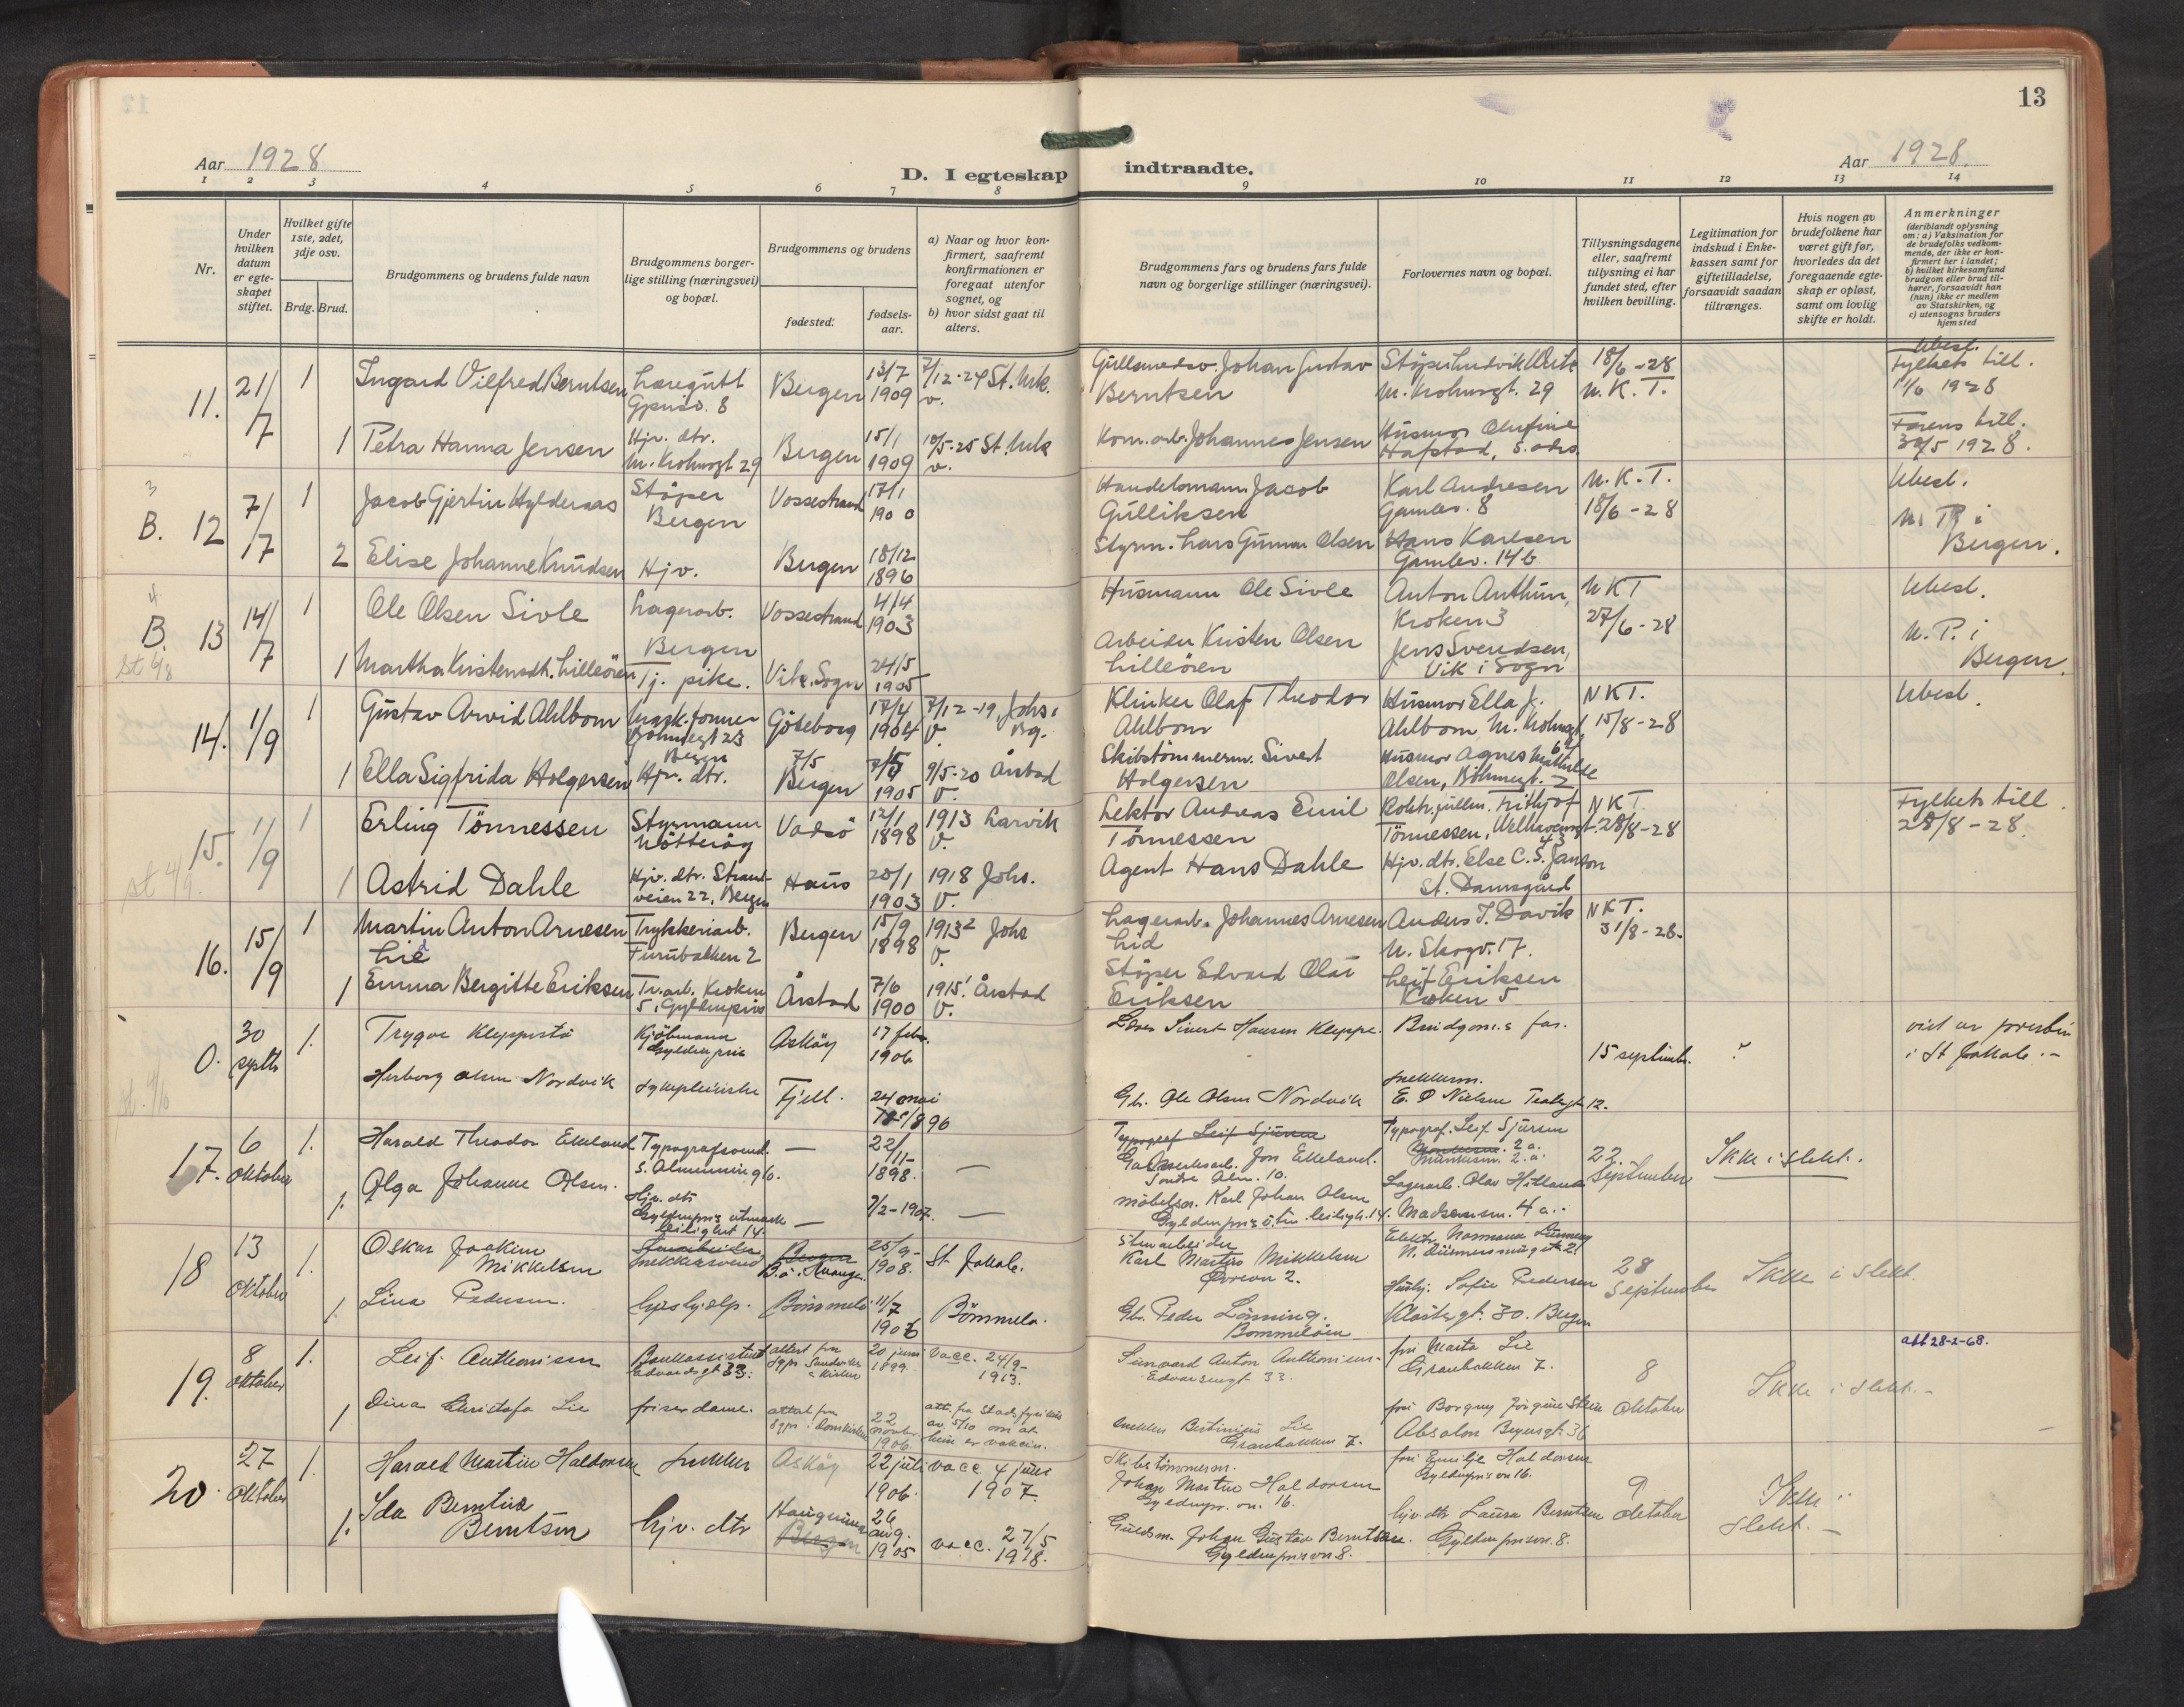 13
Aar 1928
D. I egteskap indtraadte.
Aar 1928.
1 2 3 4 5 6 7 8 9 10 11 12 13 14
Nr.
Under hvilken datum er egteskapet stiftet.
Hvilket gifte 1ste, 2det, 3dje osv.
Brdg. Brud.
Brudgommens og brudens fulde navn
Brudgommens borgerlige stilling (næringsvei) og bopæl.
Brudgommens og brudens
fødested.
fødselsaar.
a) Naar og hvor konfirmert, saafremt konfirmationen er foregaat utenfor sognet, og
b) hvor sidst gaat til alters.
Brudgommens fars og brudens fars fulde navn og borgerlige stillinger (næringsvei).
Forlovernes navn og bopæl.
Tillysningsdagene eller, saafremt tillysning ei har fundet sted, efter hvilken bevilling.
Legitimation for indskud i Enkekassen samt for giftetilladelse, forsaavidt saadan tiltrænges.
Hvis nogen av brudefolkene har været gift før, hvorledes da det foregaaende egteskap er opløst, samt om lovlig skifte er holdt.
Anmerkninger (deriblandt oplysning om: a) Vaksination for de brudefolks vedkommende, der ikke er konfirmert her i landet; b) hvilket kirkesamfund brudgom eller brud tilhører, forsaavidt han (hun) ikke er medlem av Statskirken, og c) utensogns bruders hjemsted
11. 21/7 1 Ingard Vilfred Berntsen Læregutt Gpriso. 8 Bergen 13/7 1909 7/12-24 St. Mrk. v. Gullsmedsv. Johan Gustav Berntsen Støper Ludvik M. Krohnsgt. 29 18/6-28 N.K.T. Ubesl. Fylkets till. 11/6 1928
1 Petra Hanna Jensen Hjv. dtr. M. Krohnsgt 29 Bergen 15/1 1909 10/5-25 St. Mrk v. Kom. arb. Johannes Jensen Husmor Olufine Hafstad, s. adrs. Farens till. 30/5 1928.
3
B. 12 7/7 1 Jacob Gjertin Hyldenaas Støper Bergen Vossestrand 17/1 1900 Handelsmann Jacob Gulliksen Karl Andresen Gamlev. 8 N.K.T. 18/6-28 Ubesl.
2 Elise Johanne Knudsen Hjv. Bergen 18/12 1896 Styrm. Lars Gunnar Olsen Hans Karlsen Gamlev. 14b N. P. i Bergen.
4
B. 13 14/7 1 Ole Olsen Sivle Lagerarb. Bergen Vossestrand 4/4 1903 Husmann Ole Sivle Anton Anthun, Kroken 3 NKT 27/6-28 Ubesl.
1 Martha Kristensdt. Lilleören Tj. pike. Vik. Sogn 24/5 1905 Arbeider Kristen Olsen Lilleören Jens Svendsen, Vik i Sogn N.P. i Bergen.
14. 1/9 1 Gustav Arvid Ahlbom Mask. former Böhmegt 23 Bergen Göteborg 17/4 1904 7/12-19, Johs. Bg. v. Klinker Olaf Theodor Ahlbom Husmor Ella J. Ahlbom, M. Krohnsgt. NKT. 15/8-28 Ubesl.
1 Ella Sigfrida Holgersen Hjv. dtr. Bergen 7/5 1905 9/5-20 Årstad v. Skibstömmerm. Sivert Holgersen Husmor Agnes Mathilde Olsen, Böhmergt.
15. 1/9 1 Erling Tönnessen Styrmann Nötteröy Vadsö 12/1 1898 1913 Larvik v. Lektor Andreas Emil Tönnessen Kontr. fullm. Fritjof Tönnessen, Welhavensgt. NKT. 28/8-28 Fylkets till. 28/8-28.
1 Astrid Dahle Hjv. dtr. Strandveien 22, Bergen Haus 20/1 1903 1918 Johs. v. Agent Hans Dahle Hjv. dtr. Else C. S. Janson St. Damsgård
16. 15/9 1 Martin Anton Arnesen Lid Trykkeriarb. Furubakken 2 Bergen 15/9 1898 1913² Johs v. Lagerarb. Johannes Arnesen Lid Anders T. Davik N. Skogv. 17. NKT. 31/8-28.
1 Emma Bergitte Eriksen Tr. arb. Kroken 5, Gyldenpris Årstad 7/6 1900 1915¹ Årstad v. Støper Edvard Olai Eriksen Leif Eriksen Kroken 5
0. 30 septb 1. Trygve Kleppestö Kjöbmann Gyldenpris Asköy 17 febr. 1906 Sivert Hansen Kleppe. Brudgom.s far. 15 septemb. ?
Herborg Olsen Nordvik sykepleierske Fjell. 24 mai 1896 Gbr. Ole Olsen Nordvik snekkerm. E. O Nielsen Teatergt 12.
17. 6 oktober 1. Harald Theodor Ekeland Typografsvend. S. Almenning 6. — 22/11 1898. — Jon Ekeland. Söndre Alm. 10. Typograf. Leif Sjursen 22 September Ikke i slekt.
1. Olga Johanne Olsen. Hjv. dtr Gyldenpris utmark leilighet 14. — 7/2-1907. — Karl Johan Olsen Lagerarb. Olav Madsensm. 4 a.
18 13 oktober 1. Oskar Joakim Mikkelsen snekkersvend 25/9 1908. St Jakob. Stenarbeider Karl Martin Mikkelsen 28 September Ikke i slekt.
1 Lina Pedersen. hushjelp. Bömmelö 11/7 1906 Bömmelo. Gbr. Peder Lönning. Bommelöen Hushj. Sofie Pedersen Klostergt. 30. Bergen
19. 8 oktober 1. Leif Anthonisen Bankassistent Edvardsgt 33. attest fra 20 juni 1899. vacc. 24/9-1913. Anton Anthonisen. 33. fru Marta Lie Granbakken 7. 8 Oktober Ikke i slekt. — att 28-2-68.
1 Dina Christofa Lie frisørdame. attest fra 22 novbr. 1906. att. fra Stadsfysikus av 5/10 om at hun er vaccin. snekker Lie Granbakken 7. fru Borgny Jörgine Stein Absalon Beyersgt. 36
20. 27 oktober 1. Harald Martin Haldorsen snekker Asköy 22 juli 1906. vacc. 4 juli 1907. Skibstömmerm. Johan Martin Haldorsen Gyldenpr. vn. 16. fru Emilje Haldorsen Gyldenprisvn 16. 9 oktober Ikke i slekt. —
1. Ida Berntine Berntsen hjv. dtr Haugesund 26 aug. 1905 vacc. 27/5 1918. Guldsm. Johan Gustav Berntsen. Gyldenprisvn 8. hjv. dtr Laura Berntsen Gyldenprisvn. 8.